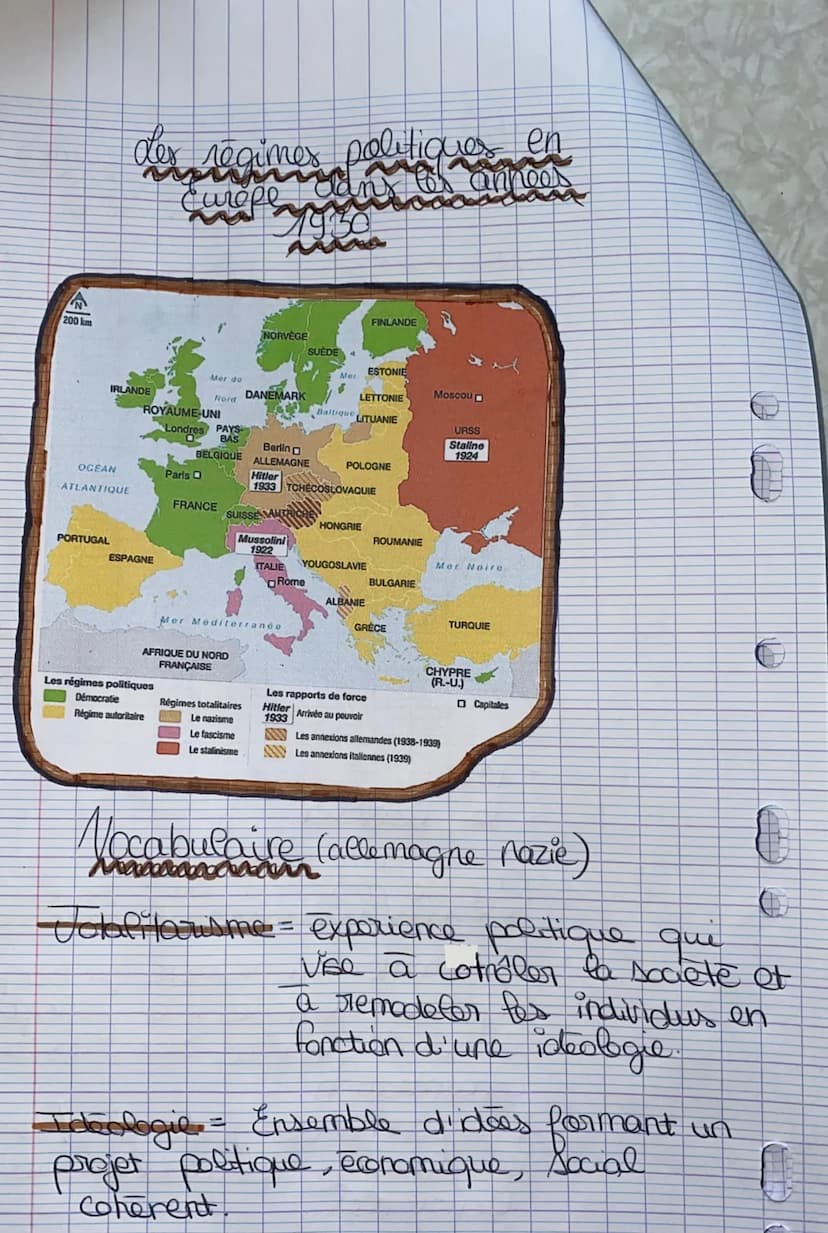 Les régimes politiques en
Europe dans les années
1930
N
200 km
FINLANDE
NORVÈGE
SUÈDE
ESTONIE
Mer du
Nord
Mer
Baltique
IRLANDE
DANEMARK
LETTONIE
Moscou
ROYAUME-UNI
LITUANIE
Londres
PAYS-
BAS
URSS
Staline
1924
Berlin
BELGIQUE
ALLEMAGNE
POLOGNE
OCÉAN
ATLANTIQUE
Paris
Hitler
1933
TCHÉCOSLOVAQUIE
FRANCE
SUISSE
AUTRICHE
HONGRIE
PORTUGAL
Mussolini
1922
ROUMANIE
ESPAGNE
ITALIE
YOUGOSLAVIE
Mer Noire
Rome
BULGARIE
ALBANIE
Mer Méditerranée
GRÈCE
TURQUIE
AFRIQUE DU NORD
FRANÇAISE
CHYPRE
(R.-U.)
Les régimes politiques
Démocratie
Régime autoritaire
Régimes totalitaires
Le nazisme
Le fascisme
Le stalinisme
Les rapports de force
Hitler
1933
Arrivée au pouvoir
Les annexions allemandes (1938-1939)
Les annexions italiennes (1939)
Capitales
Vocabulaire (allemagne nazie)
Totalitarisme = expérience politique qui
vise à cotrôler la société et
à remodeler les individus en
fonction d'une idéologie.
Idéologie = Ensemble d'idées formant un
projet politique, économique, social
cohérent.